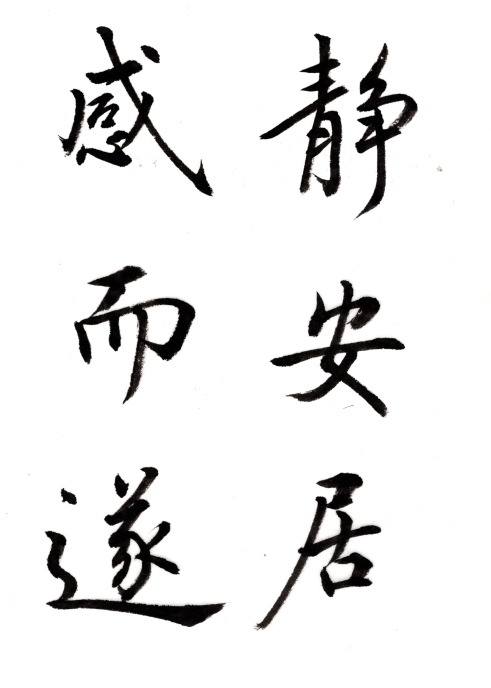 静安居
感而遂